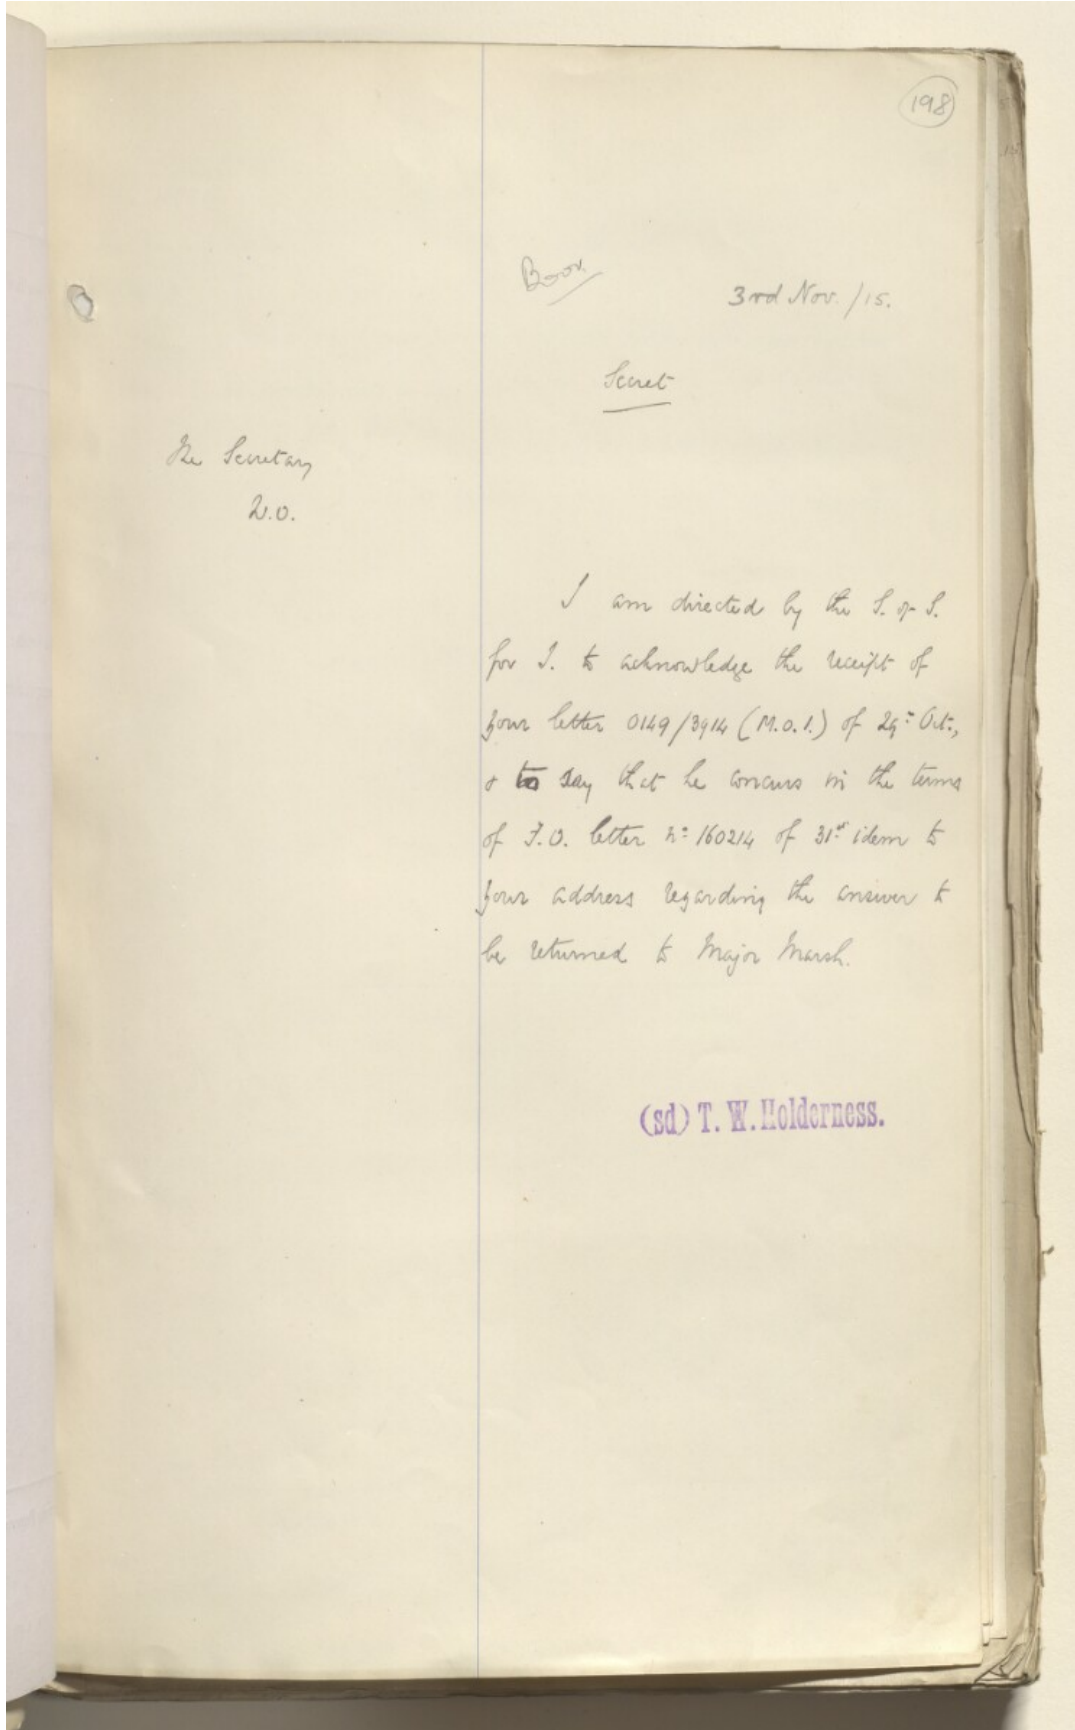 198
3rd Nov. /15.
Secret
The Secretary
W.O.
I am directed by the S. of S.
for I. to acknowledge the receipt of
your letter 0149/3914 (M.O.1.) of 29th Oct.,
& to say that he concurs in the terms
of F.O. letter no 160214 of 31st idem to
your address regarding the answer to
be returned to Major Marsh.
(sd) T. W. Holderness.